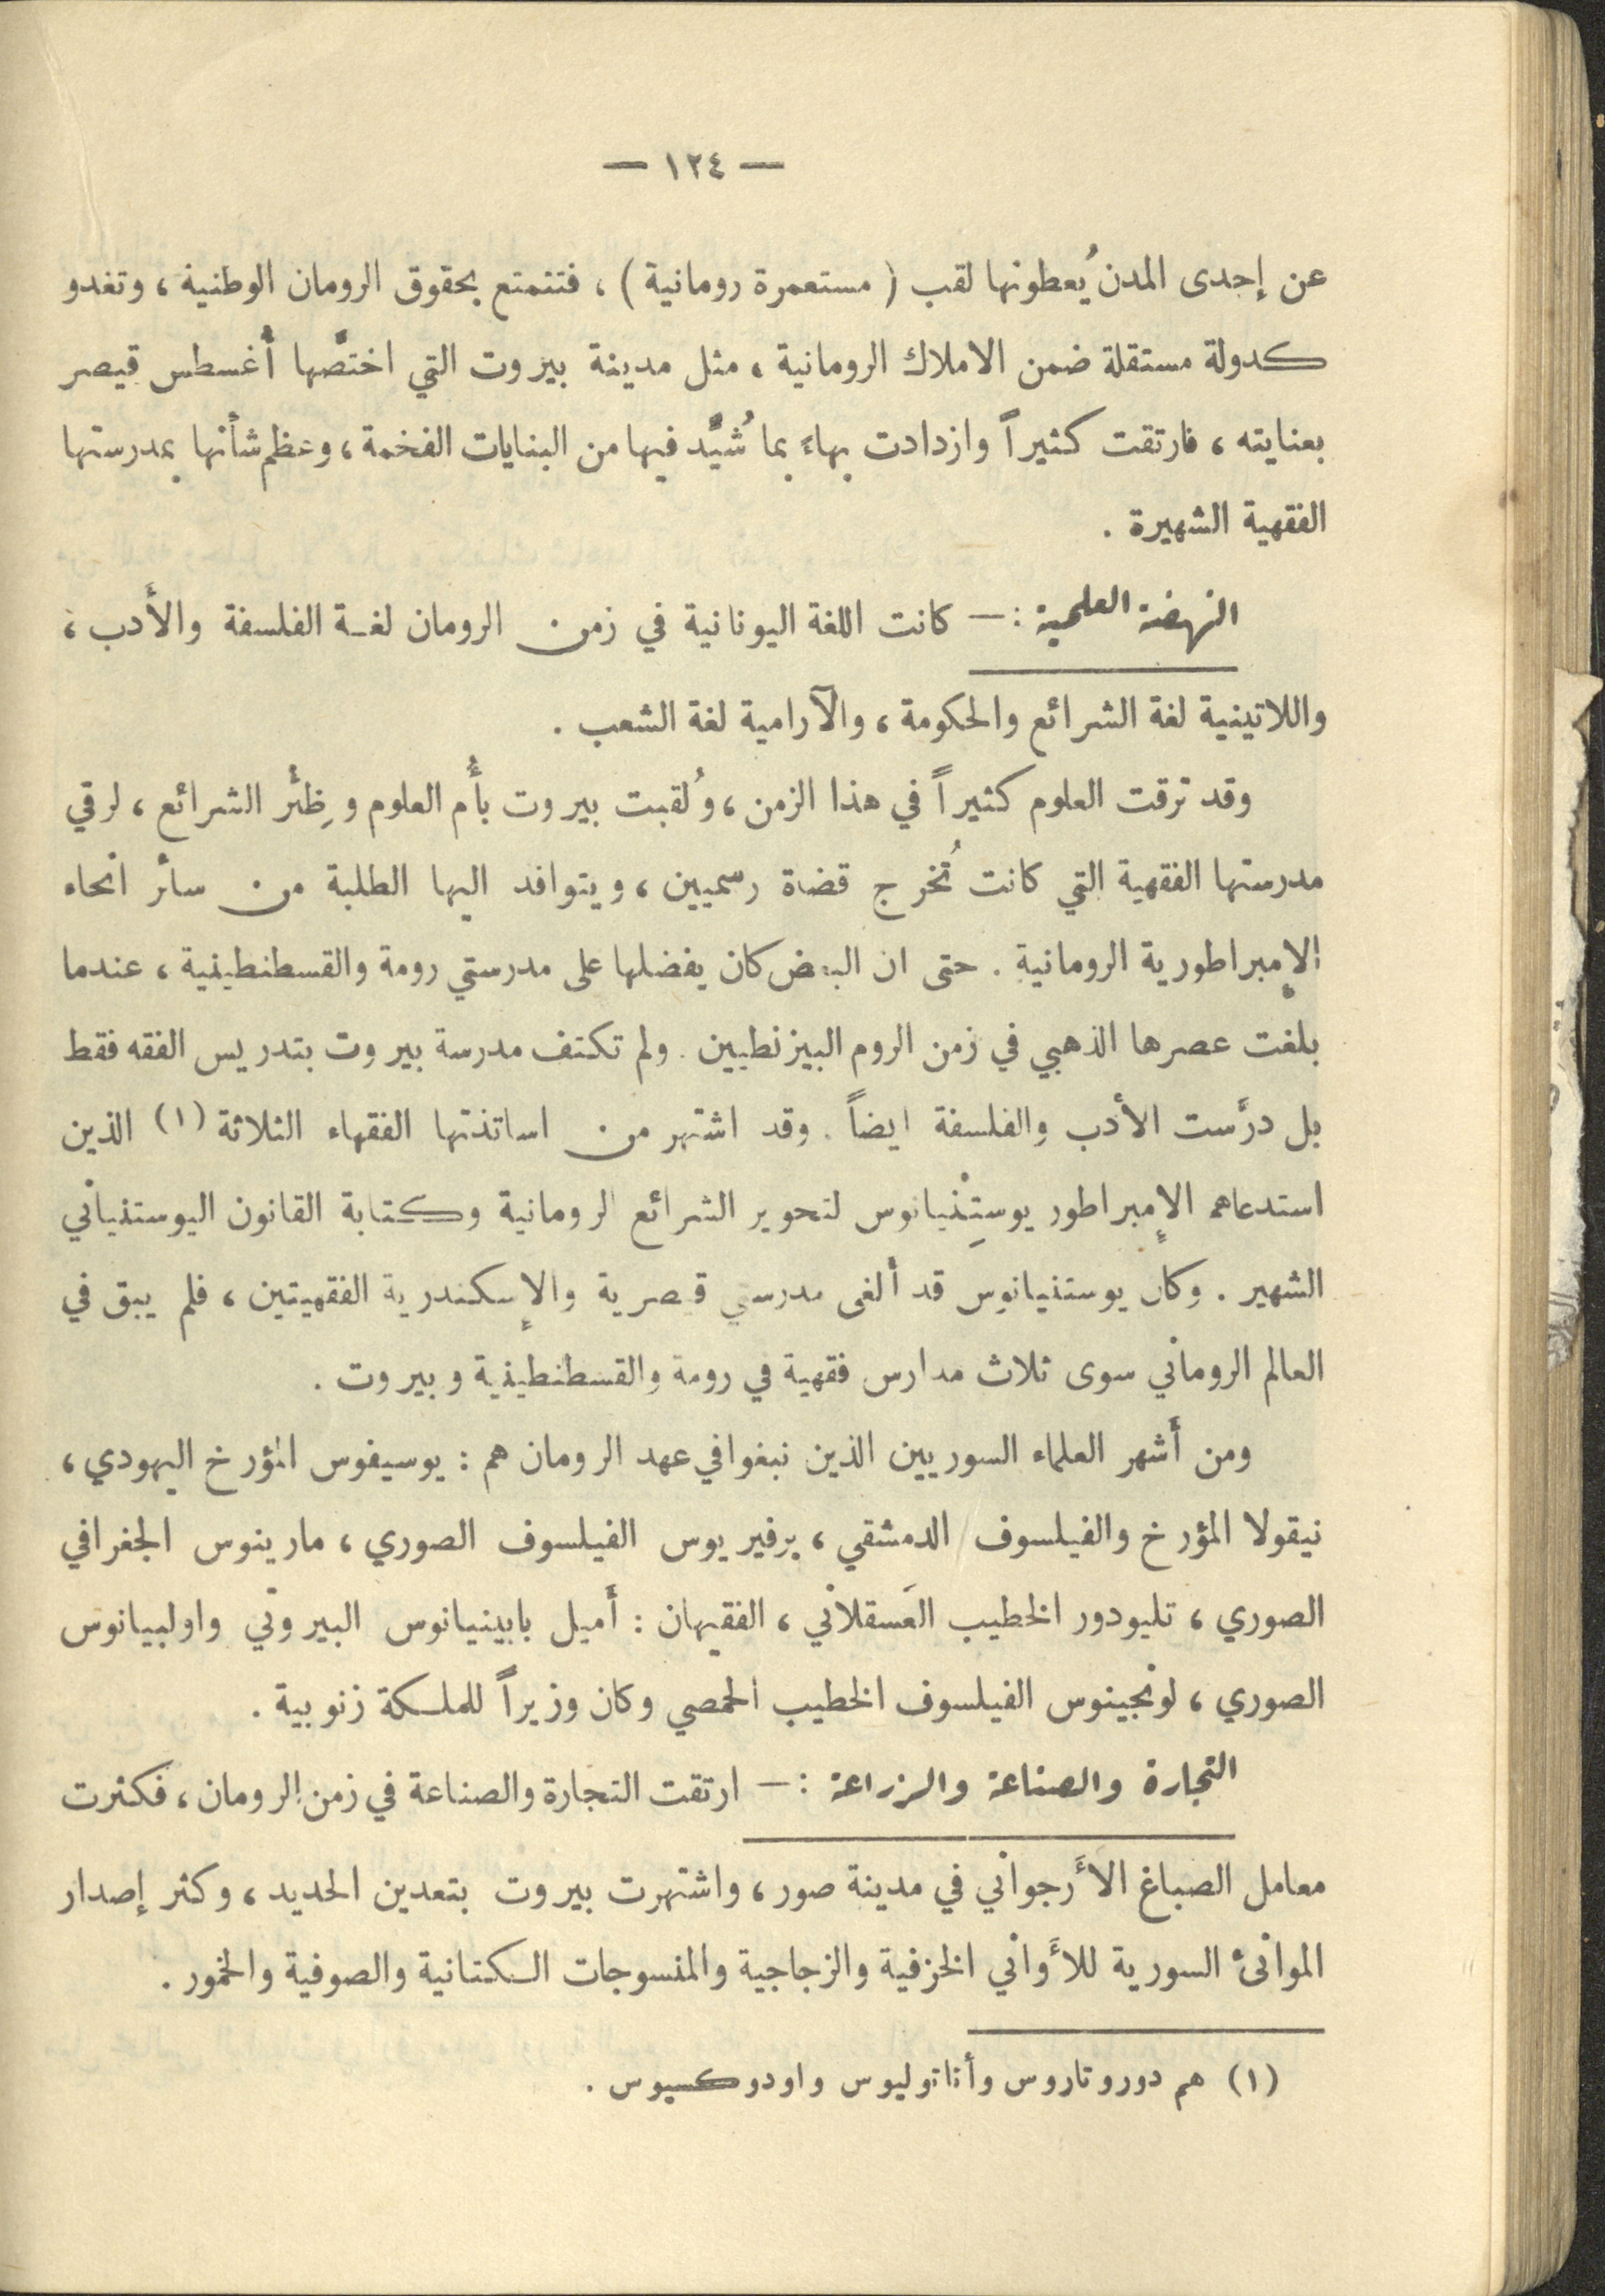 — ١٢٤ —
عن إحدى المدن يُعطونها لقب ( مستعمرة رومانية ) ، فتتمتع بحقوق الرومان الوطنية ، وتغدو
كدولة مستقلة ضمن الاملاك الرومانية ، مثل مدينة بيروت التي اختصَّها أُغسطس قيصر
بعنايته ، فارتقت كثيراً وازدادت بهاءً بما شُيِّد فيها من البنايات الفخمة ، وعظم شأنها بمدرستها
الفقهية الشهيرة .
النهضة العلمية : — كانت اللغة اليونانية في زمن الرومان لغة الفلسفة والأَدب ،
واللاتينية لغة الشرائع والحكومة ، والآرامية لغة الشعب .
وقد ترقت العلوم كثيراً في هذا الزمن ، ولُقبت بيروت بأُم العلوم وظِئْر الشرائع ، لرقي
مدرستها الفقهية التي كانت تُخرج قضاة رسميين ، ويتوافد اليها الطلبة من سائر انحاء
الإمبراطورية الرومانية . حتى ان البعض كان يفضلها على مدرستي رومة والقسطنطينية ، عندما
بلغت عصرها الذهبي في زمن الروم البيزنطيين . ولم تكتف مدرسة بيروت بتدريس الفقه فقط
بل درَّست الأدب والفلسفة ايضاً . وقد اشتهر من اساتذتها الفقهاء الثلاثة (١) الذين
استدعاهم الإمبراطور يوستِنْنيانوس لتحوير الشرائع الرومانية وكتابة القانون اليوستنياني
الشهير . وكان يوستنيانوس قد ألغى مدرستي قيصرية والإسكندرية الفقهيتين ، فلم يبق في
العالم الروماني سوى ثلاث مدارس فقهية في رومة والقسطنطينية وبيروت .
ومن أَشهر العلماء السوريين الذين نبغوا في عهد الرومان هم : يوسيفوس المؤرخ اليهودي ،
نيقولا المؤرخ والفيلسوف الدمشقي ، برفيريوس الفيلسوف الصوري ، مارينوس الجغرافي
الصوري ، تليودور الخطيب العَسقلاني ، الفقيهان : أَميل بابينيانوس البيروتي واولبيانوس
الصوري ، لونجينوس الفيلسوف الخطيب الحمصي وكان وزيراً للملكة زنوبية .
التجارة والصناعة والزراعة : — ارتقت التجارة والصناعة في زمن الرومان ، فكثرت
معامل الصباغ الأَرجواني في مدينة صور ، واشتهرت بيروت بتعدين الحديد ، وكثر إصدار
الموانئ السورية للأَواني الخزفية والزجاجية والمنسوجات الكتانية والصوفية والخمور .
(١) هم دوروتاروس وأناتوليوس واودوكسيوس .